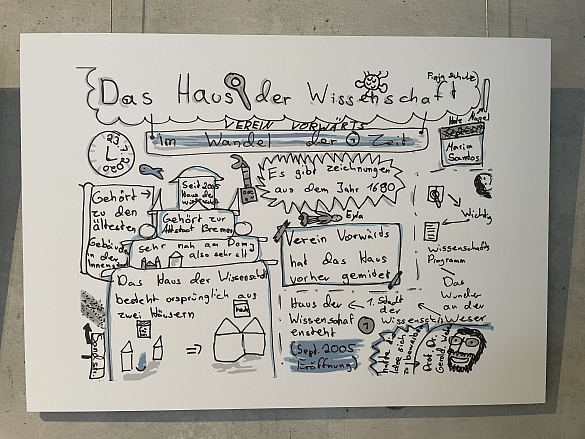 Das Haus der Wissenschaft
Finja Schulz
VEREIN VORWÄRTS
Im Wandel der Zeit
Maria
Santos
23
2020
Es gibt zeichnungen
aus dem Jahr 1680
Seit 2005
Haus der
Gehört
zu den
ältesten
Gebäuden
in der
Innenstadt
Gehört zur
Altstadt Bremen
sehr nah am Dom
also sehr alt
Verein Vorwärts
hat das Haus
vorher gemidet
Wichtig
Wissenschafts
Programm
Das
Wunder
an der
Weser
Das Haus der Wissenschaft
bedeht ursprünglich aus
zwei Häusern
Haus der
Wissenschaf
ensteht
(Sept. 2005
Eröffnung)
1. Stadt
der
Wissenschaft
hatte die
Idee sich
zu bewerben
Prof. Dr.
Gerold